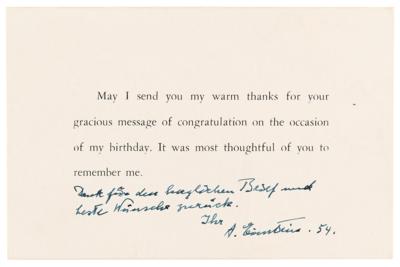 May I send you my warm thanks for your
gracious message of congratulation on the occasion
of my birthday. It was most thoughtful of you to
remember me.
Dank für den herzlichen Brief und
beste Wünsche zurück.
Ihr
A. Einstein. 54.